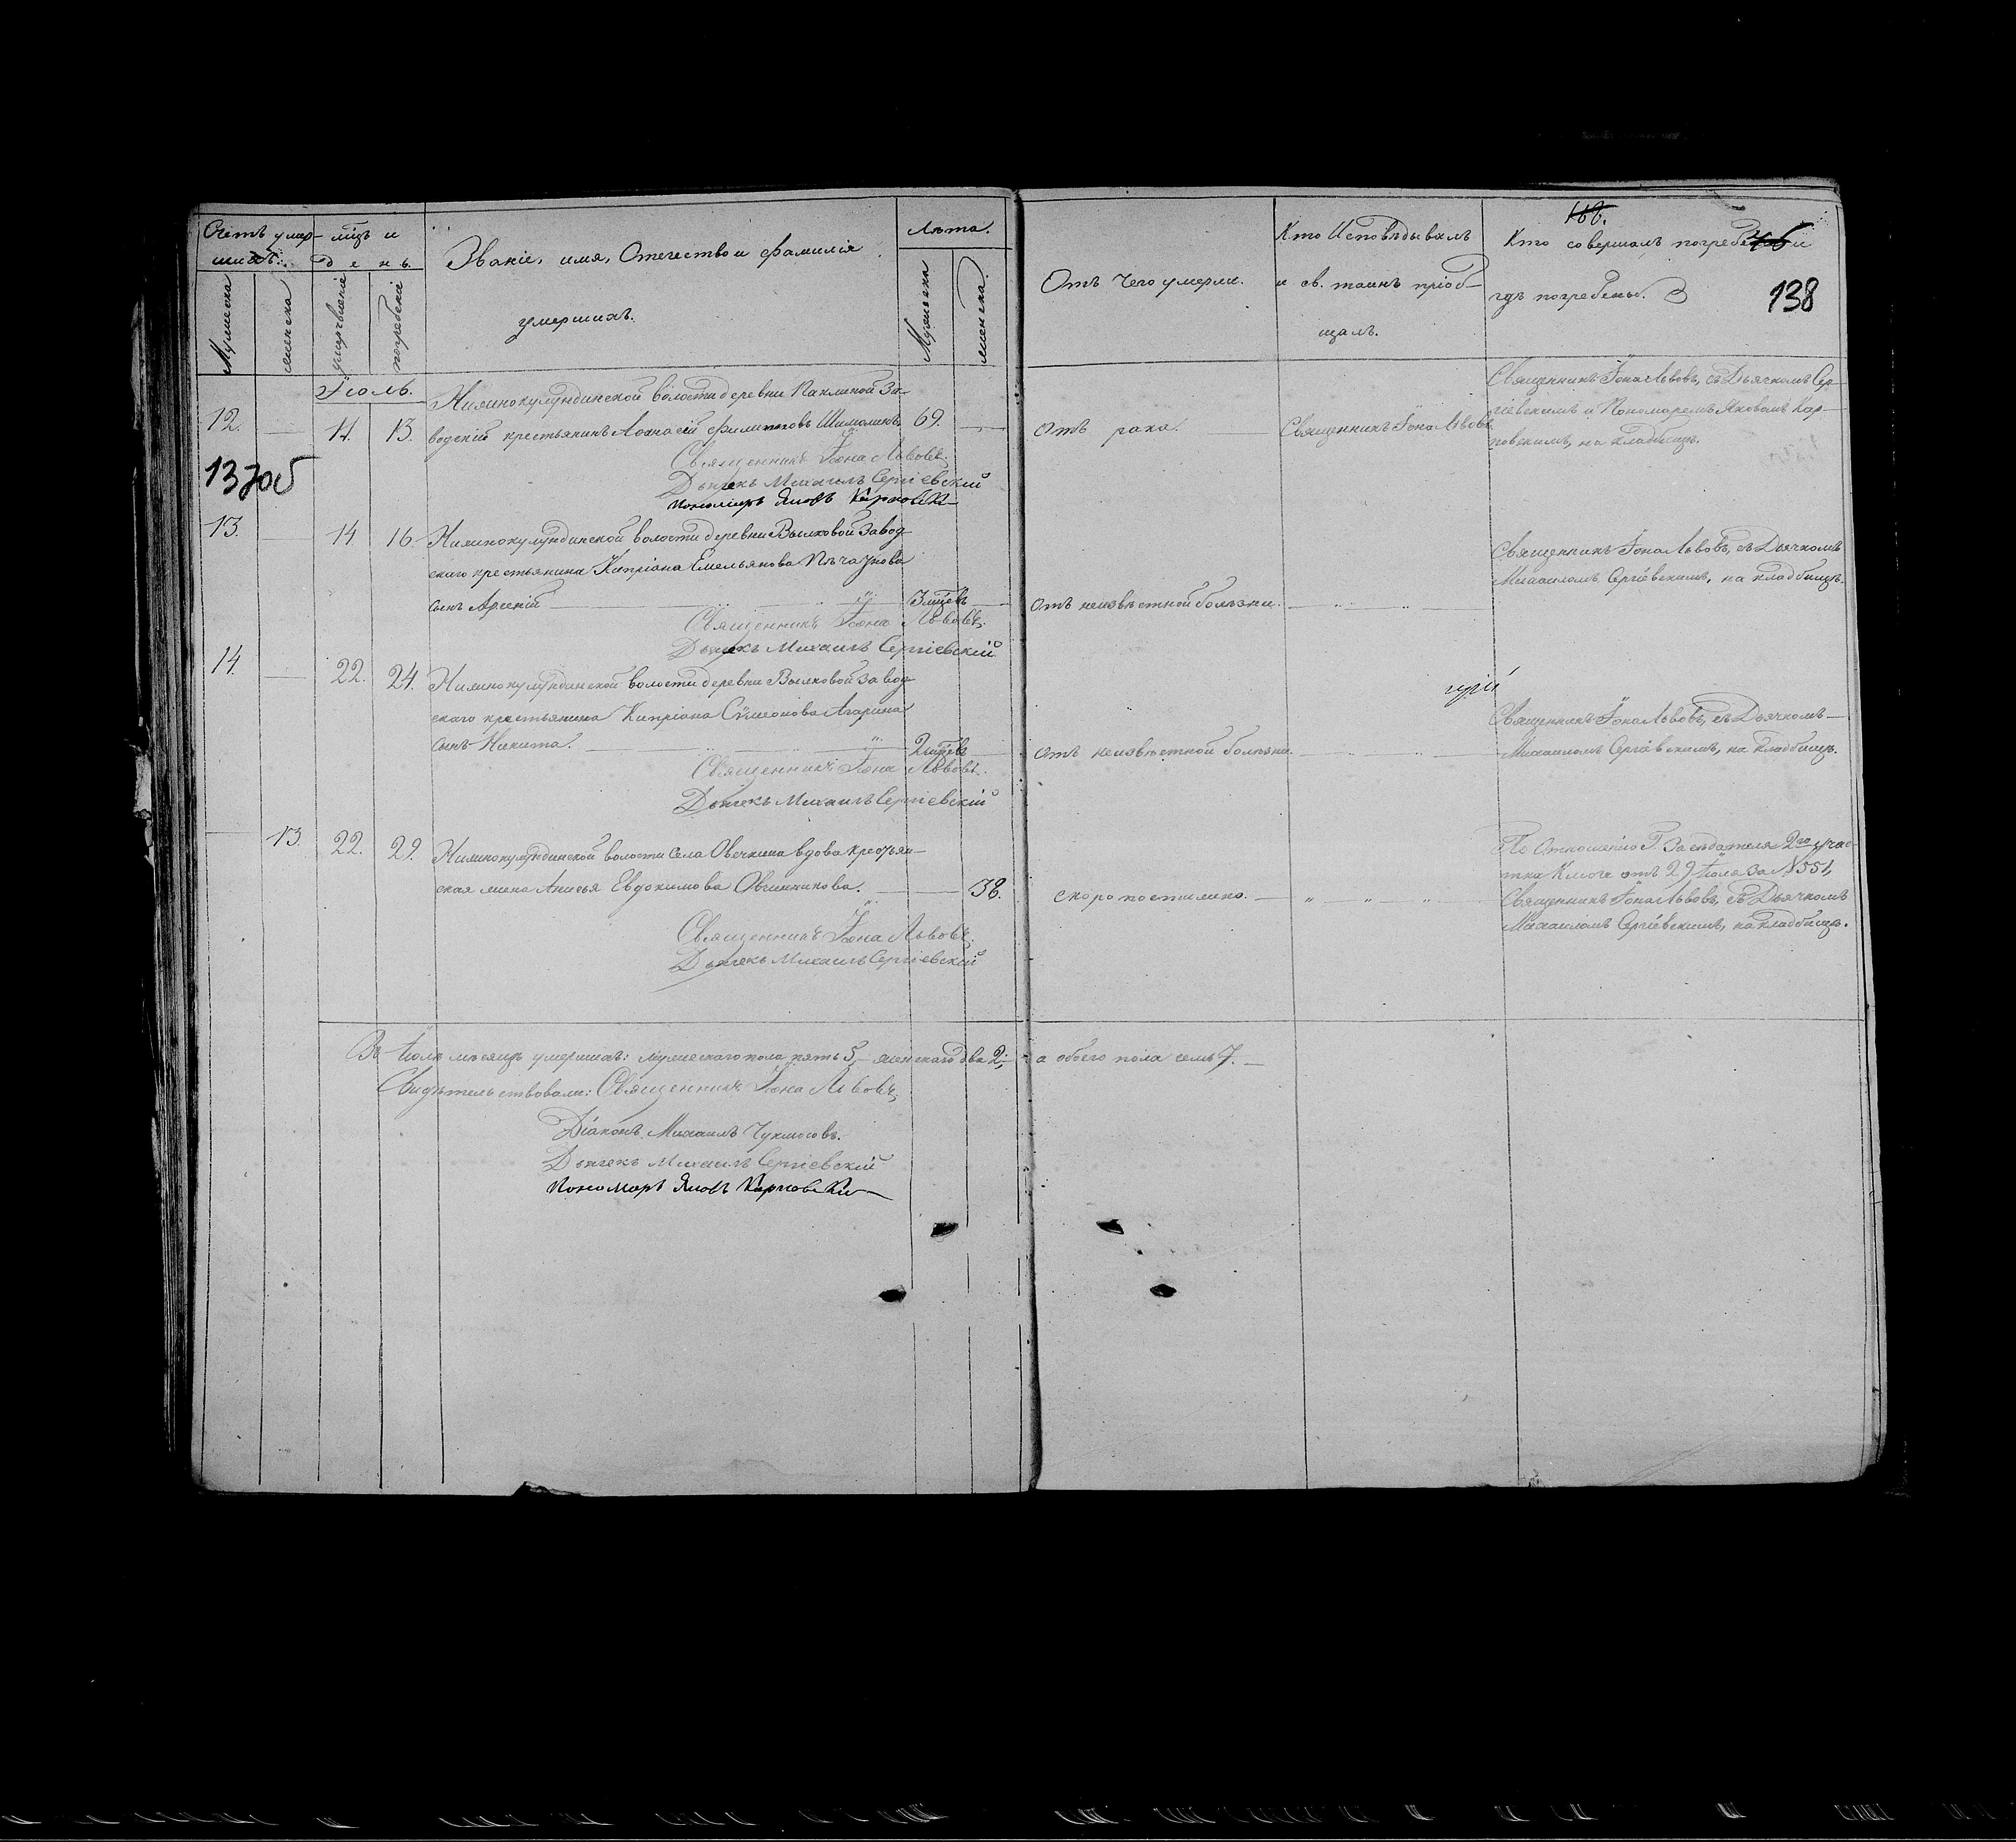 Счетъ умер-
шихъ.
мѣцъ и
день.
Званіе, имя, Отечество и фамилія
умершихъ.
Лѣта.
Мужеска
женска
умертвіе
погребеніе
Мужеска
женска.
Отъ Чего умерли.
Кто Исповѣдывалъ
и св. таинъ пріоб-
щалъ.
Кто совершалъ погребеніе и
гдѣ погребены.
138
Іюль.
12. 11. 13. Нижнокулундинской волости деревни Паклиной За-
водскій крестьянинъ Аѳанасій Филиповъ 69.
Священникъ Іона Львовъ.
Дьячекъ Михаилъ Сергіевскій
Пономарь Яковъ
Отъ рака.
Священникъ Іона Львовъ
Священникъ Іона Львовъ, съ Дьячкомъ Сер-
гіевскимъ и Пономаремъ Яковомъ Кар-
повскимъ, на кладбищѣ.
137об
13. 14. 16. Нижнокулундинской волости деревни Вылковой Завод-
скаго крестьянина Кипріана Емельянова
сынъ Арсеній 3 мцевъ
Священникъ Іона Львовъ.
Дьячекъ Михаилъ Сергіевскій
Отъ неизвѣстной болѣзни.
Священникъ Іона Львовъ, съ Дьячкомъ
Михаиломъ Сергіевскимъ, на кладбищѣ.
14. 22. 24. Нижнокулундинской волости деревни Вылковой завод-
скаго крестьянина Кипріана Сѵмеонова Агарина
сынъ Никита. 2 мцевъ
Священникъ Іона Львовъ.
Дьячекъ Михаилъ Сергіевскій
Отъ неизвѣстной болѣзни.
Священникъ Іона Львовъ, съ Дьячкомъ
Михаиломъ Сергіевскимъ, на кладбищѣ.
13 22. 29. Нижнокулундинской волости села Овечкина вдова крестьян-
ская жена Анисья Евдокимова Овчинникова. 38.
Священникъ Іона Львовъ.
Дьячекъ Михаилъ Сергіевскій
скоропостижно.
По Отношенію Г. Засѣдателя 2го учас-
тка отъ 29 Іюля за №551,
Священникъ Іона Львовъ, съ Дьячкомъ
Михаиломъ Сергіевскимъ, на кладбищѣ.
Въ Іюлѣ мѣсяцѣ умершихъ: мужескаго пола пять 5, женскаго два 2; а обоего пола семь 7.
Свидѣтельствовали: Священникъ Іона Львовъ,
Діаконъ Михаилъ
Дьячекъ Михаилъ Сергіевскій
Пономарь Яковъ